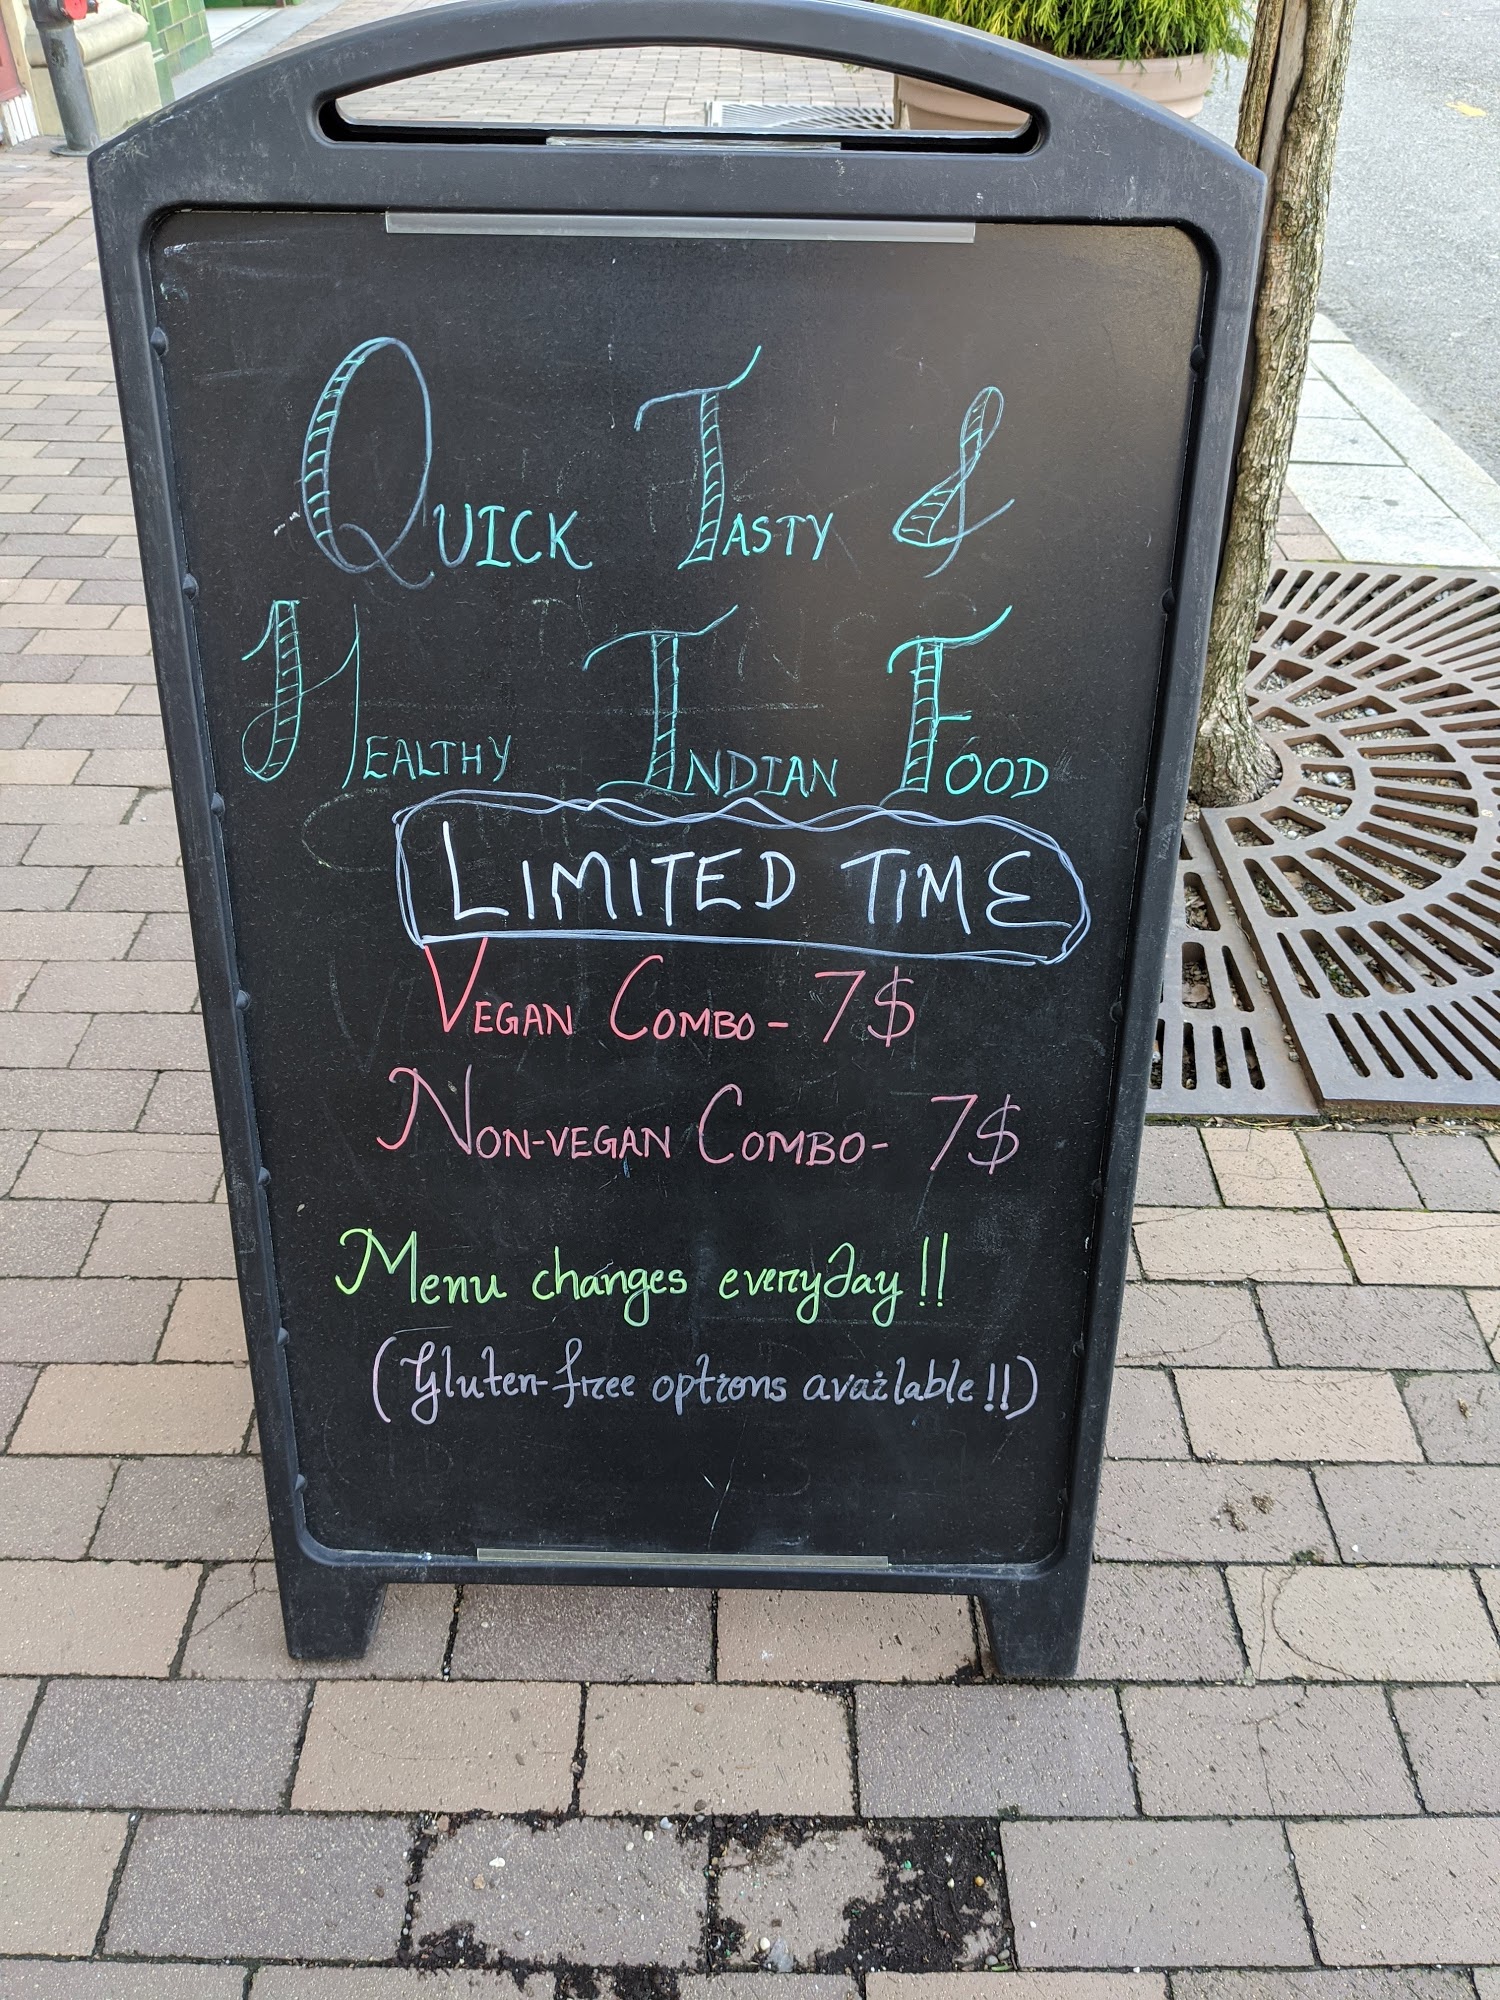 QUICK TASTY &
HEALTHY INDIAN FOOD
LIMITED TIME
VEGAN COMBO - 7$
NON-VEGAN COMBO - 7$
Menu changes everyday!!
(Gluten-free options available!!)